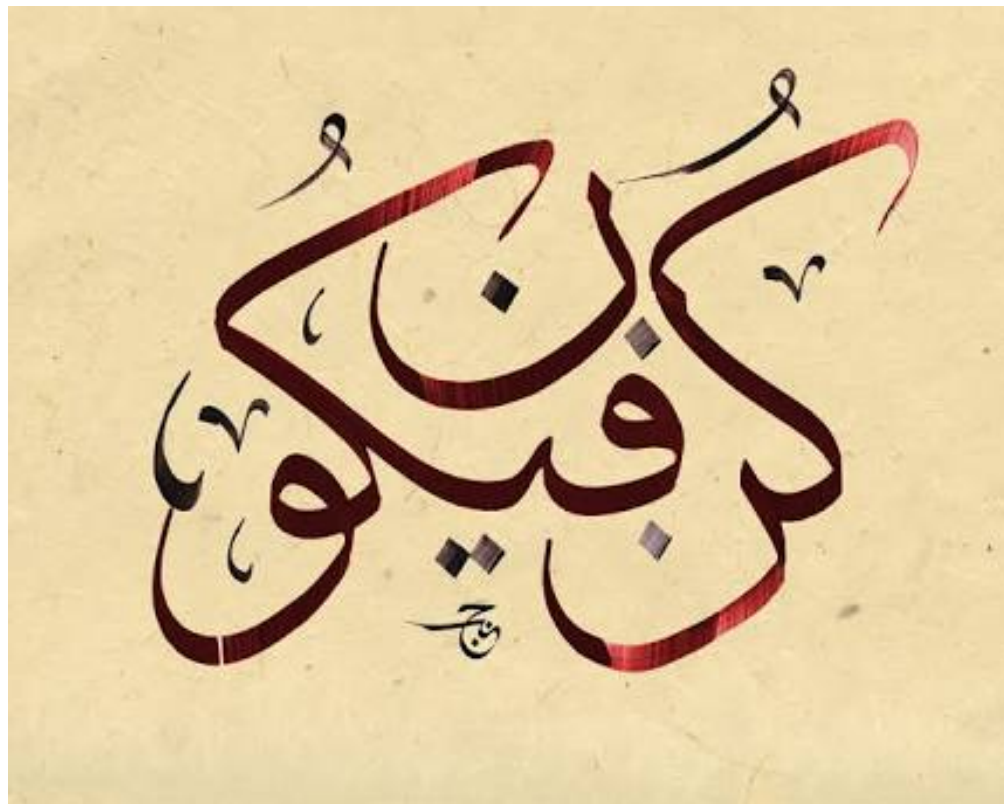 كُن فيكُون